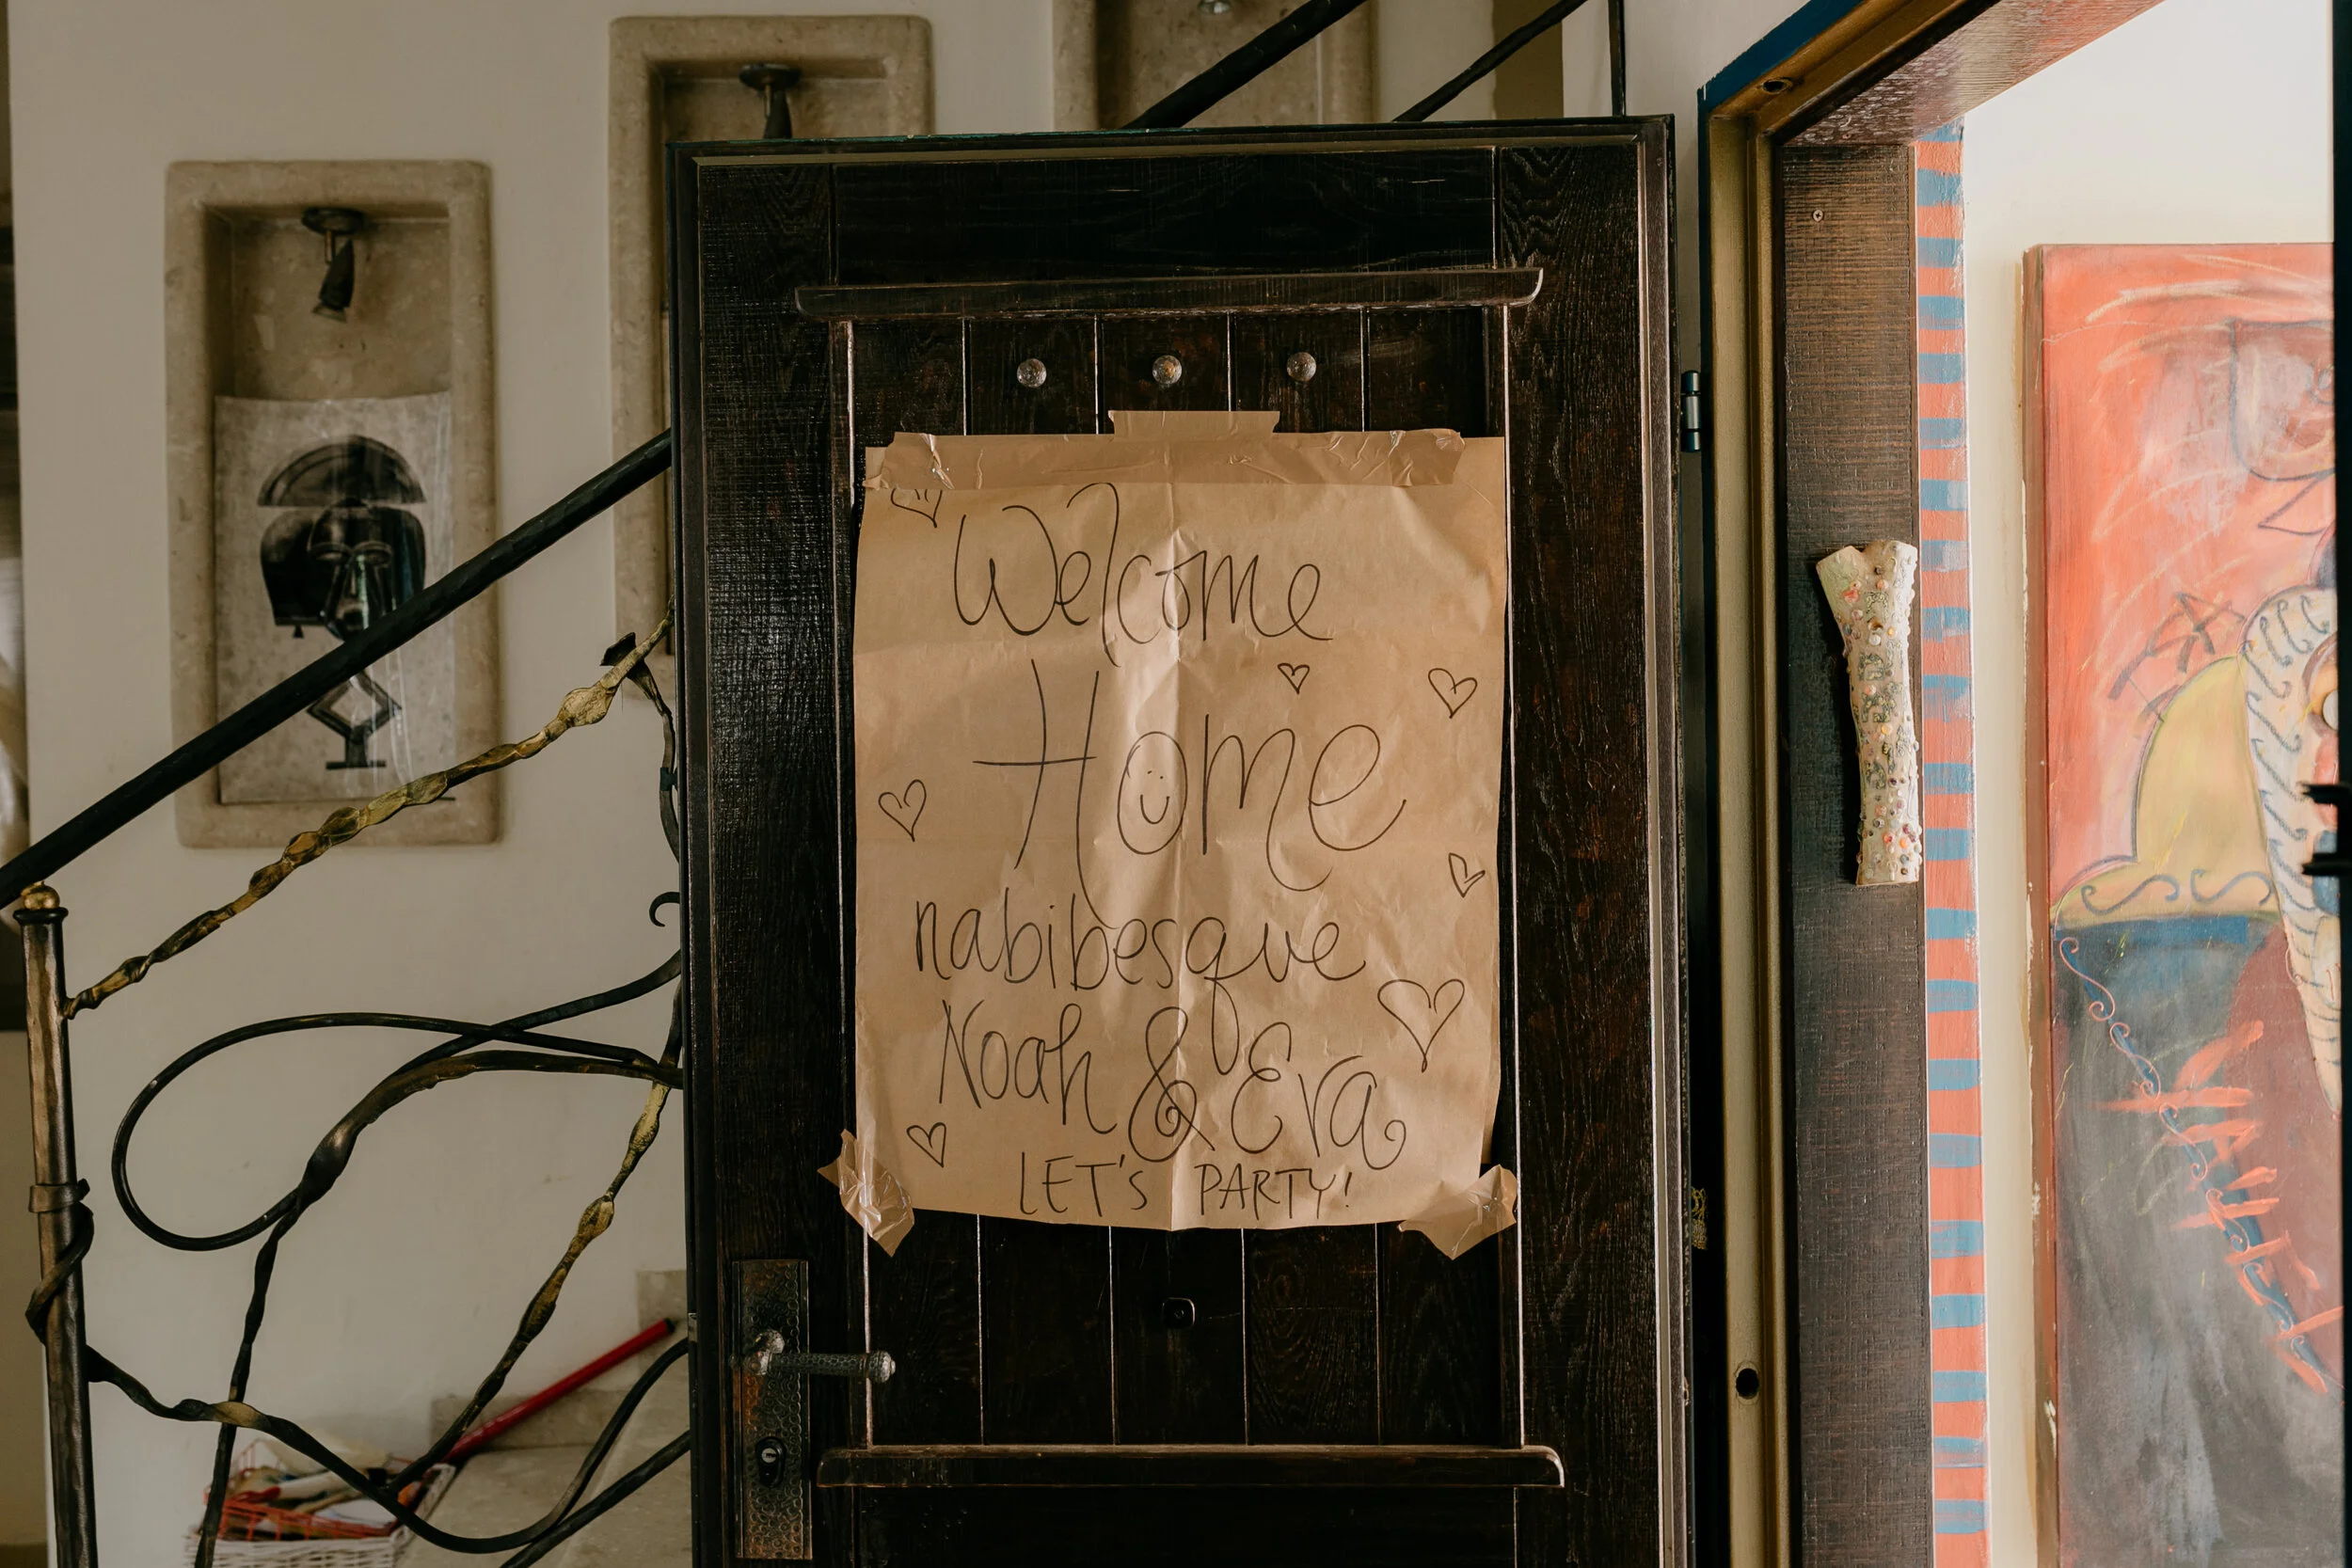 Welcome
Home
nabibesque
Noah & Eva
LET'S PARTY!